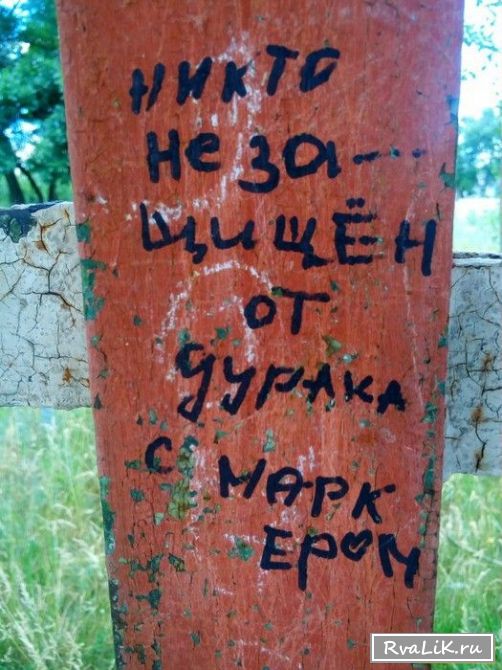 никто
не за-
щищён
от
дурака
с марк
ером
RvaLiK.ru